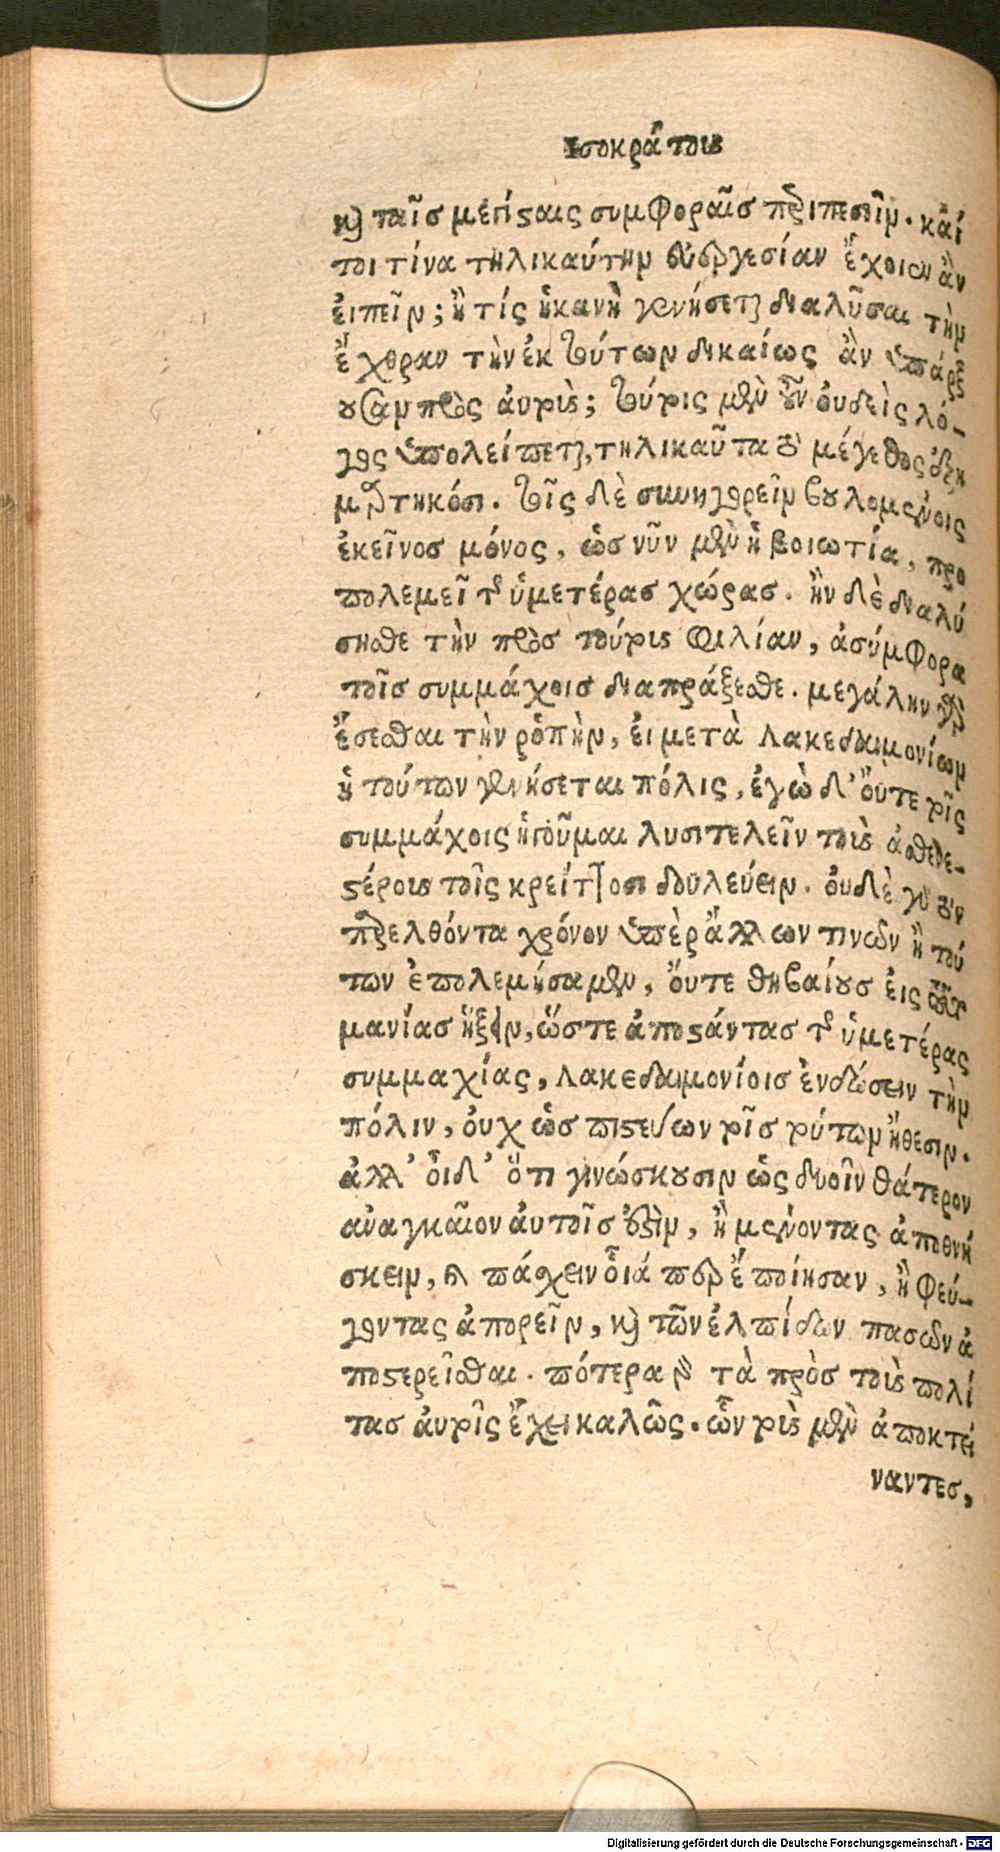 Ισοκράτους
καὶ ταῖς μεγίσαις συμφοραῖς περιπεσεῖν. καί
τοι τίνα τηλικαύτην εὐεργεσίαν ἔχοιεν ἂν
εἰπεῖν; ἢ τίς ἱκανὴ γενήσεται διαλῦσαι τὴν
ἔχθραν τὴν ἐκ τούτων δικαίως ἂν ὑπάρξ
ουσαν πρὸς αὐτούς; τούτοις μὲν οὖν οὐδεὶς λό-
γος ὑπολείπεται, τηλικαῦτα τὸ μέγεθος ἐξη
μαρτηκόσι. τοῖς δὲ συνηγορεῖν βουλομένοις
ἐκεῖνος μόνος, ὡς νῦν μὲν ἡ βοιωτία, προ
πολεμεῖ τῆς ὑμετέρας χώρας. ἢν δὲ διαλύ
σησθε τὴν πρὸς τούτους φιλίαν, ἀσύμφορα
τοῖς συμμάχοις διαπράξεσθε. μεγάλην γὰρ
ἔσεσθαι τὴν ῥοπὴν, εἰ μετὰ λακεδαιμονίων
ἡ τούτων γενήσεται πόλις, ἐγὼ δ' οὔτε τοῖς
συμμάχοις ἡγοῦμαι λυσιτελεῖν τοὺς ἀσθενε-
σέροις τοῖς κρείττοσι δουλεύειν. οὐδὲ γὰρ τὸν
παρελθόντα χρόνον ὑπὲρ ἄλλων τινῶν ἢ τού
των ἐπολεμήσαμεν, οὔτε θηβαίους εἰς τοῦτο
μανίας ἥξειν, ὥστε ἀποσάντας τῆς ὑμετέρας
συμμαχίας, λακεδαιμονίοις ἐνδώσειν τὴν
πόλιν, οὐχ ὡς πισεύων τοῖς τούτων ἤθεσιν.
ἀλλ' οἶδ' ὅτι γινώσκουσιν ὡς δυοῖν θάτερον
ἀναγκαῖον αὐτοῖς ἐστὶν, ἢ μένοντας ἀποθνή
σκειν, καὶ πάσχειν οἷά περ ἐποίησαν, ἢ φεύ-
γοντας ἀπορεῖν, καὶ τῶν ἐλπίδων πασῶν ἀ
ποσερεῖσθαι. πότερα δὲ τὰ πρὸς τοὺς πολί
τας αὐτοῖς ἔχει καλῶς. ὧν τοὺς μὲν ἀποκτεί
ναντες,
Digitalisierung gefördert durch die Deutsche Forschungsgemeinschaft - DFG